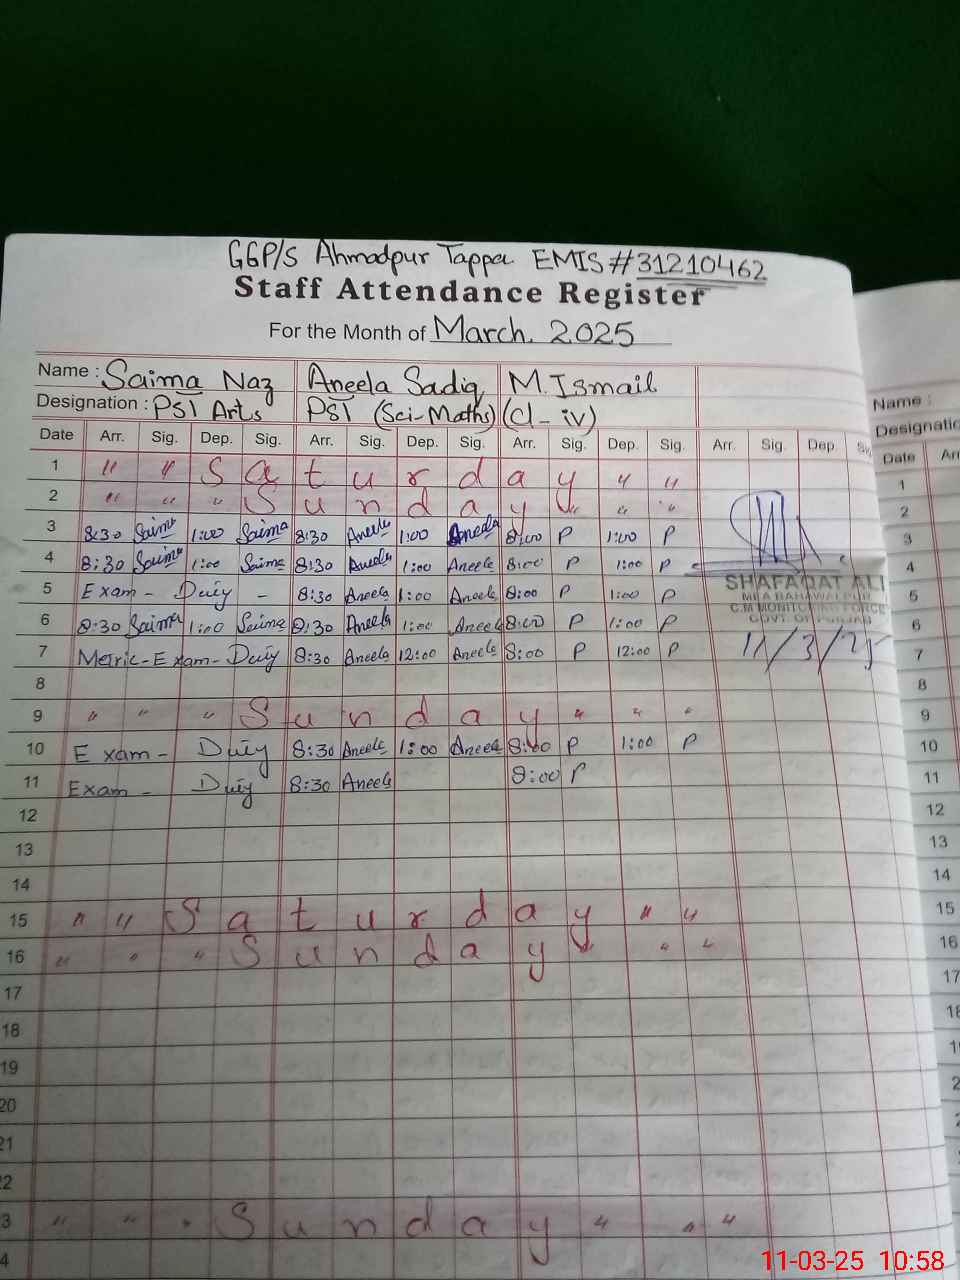 GGP/S Ahmadpur Tappa EMIS # 31210462
Staff Attendance Register
For the Month of March, 2025
Name : Saima Naz Aneela Sadiq M. Ismail
Designation : PST Arts PST (Sci-Maths) (Cl-iv)
Date Arr. Sig. Dep. Sig. Arr. Sig. Dep. Sig. Arr. Sig. Dep. Sig. Arr. Sig. Dep. Sig
1 " " Saturday " "
2 " " " Sunday " "
3 8:30 Saima 1:00 Saima 8:30 Aneela 1:00 Aneela 8:00 P 1:00 P
4 8:30 Saima 1:00 Saima 8:30 Aneela 1:00 Aneela 8:00 P 1:00 P
5 Exam - Duty - 8:30 Aneela 1:00 Aneela 8:00 P 1:00 P
6 8:30 Saima 1:00 Saima 8:30 Aneela 1:00 Aneela 8:00 P 1:00 P
7 Metric-Exam-Duty 8:30 Aneela 12:00 Aneela 8:00 P 12:00 P
8
9 " " " Sunday " " "
10 Exam - Duty 8:30 Aneela 1:00 Aneela 8:00 P 1:00 P
11 Exam - Duty 8:30 Aneela 8:00 P
12
13
14
15 " " Saturday " "
16 " " " Sunday " "
17
18
19
20
21
22
3 " " " Sunday " " "
4
SHAFAQAT ALI
MEA BAHAWALPUR
C.M MONITORING FORCE
GOVT. OF PUNJAB
11/3/25
Name :
Designatio
Date Arr
1
2
3
4
5
6
7
8
9
10
11
12
13
14
15
16
17
18
11-03-25 10:58